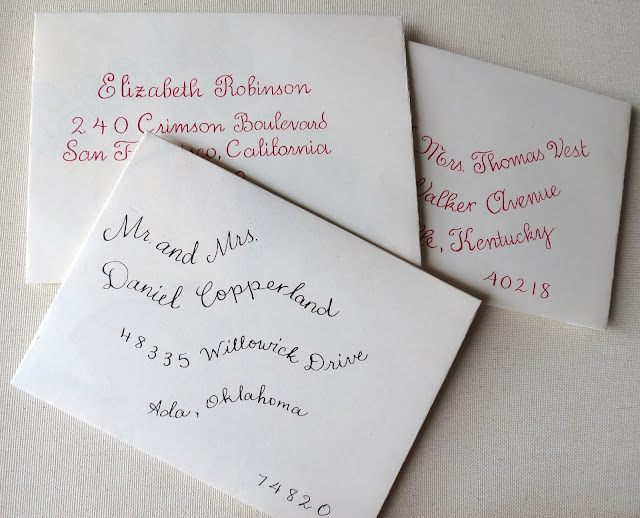 Elizabeth Robinson
240 Crimson Boulevard
San F co, California
Mrs. Thomas Vest
Walker Avenue
, Kentucky
40218
Mr. and Mrs.
Daniel Copperland
48335 Willowick Drive
Ada, Oklahoma
74820